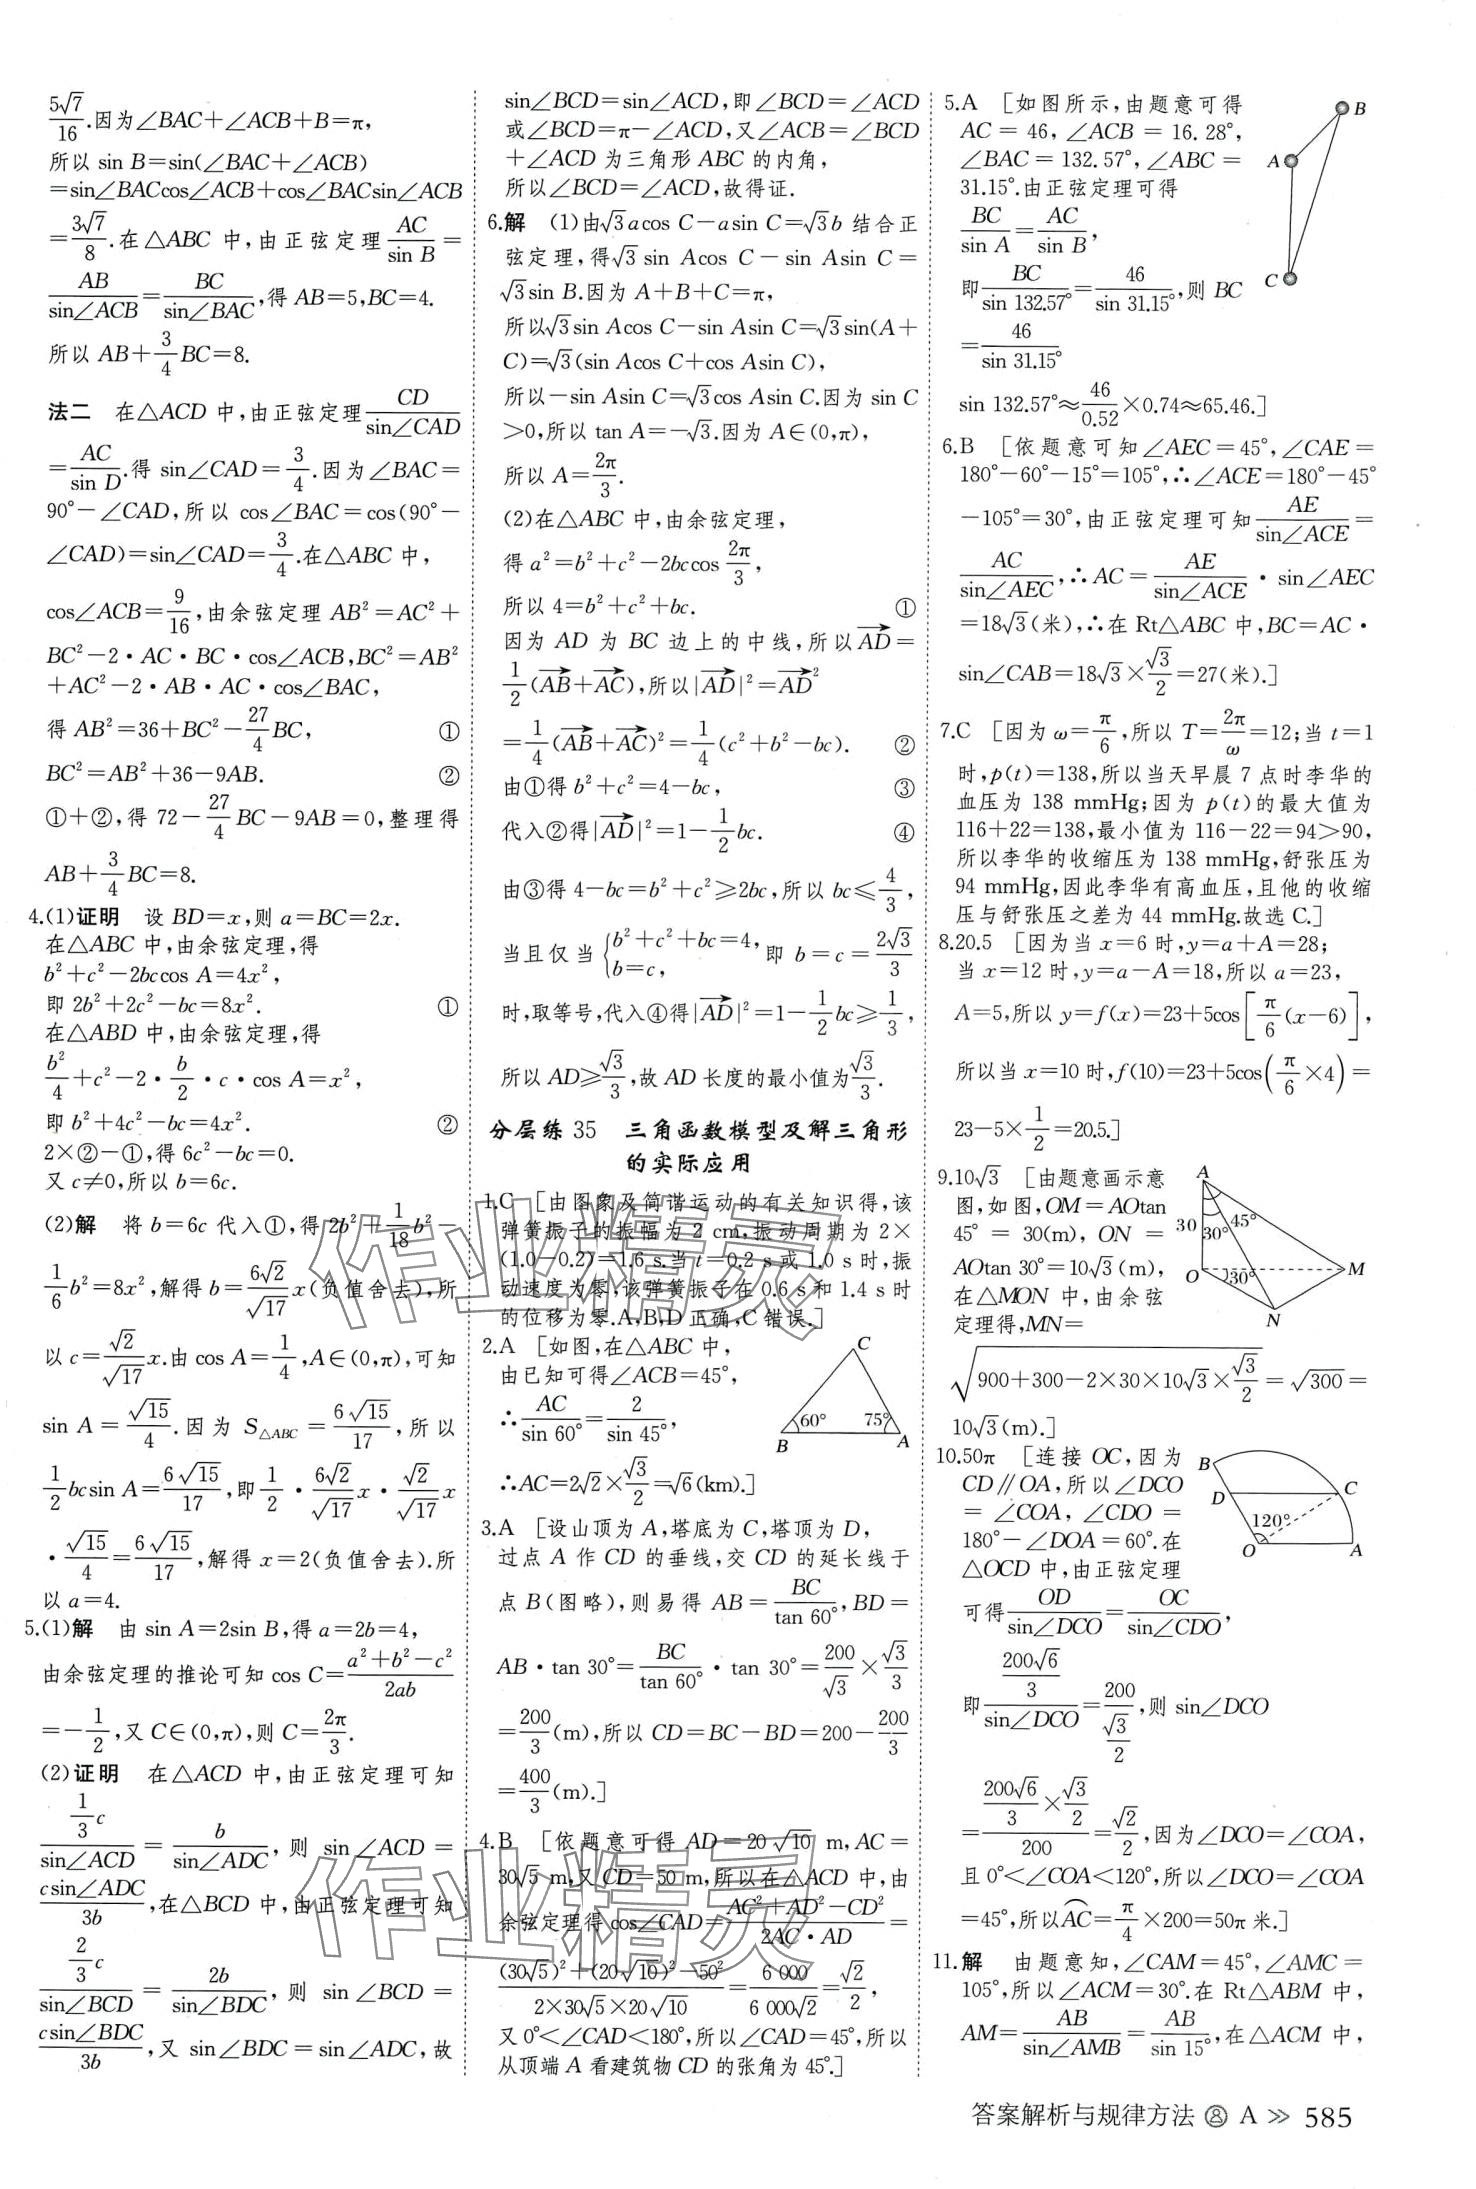 5√7/16.因为∠BAC+∠ACB+B=π,
所以 sin B=sin(∠BAC+∠ACB)
=sin∠BACcos∠ACB+cos∠BACsin∠ACB
=3√7/8.在△ABC 中,由正弦定理 AC/sin B=
AB/sin∠ACB=BC/sin∠BAC,得 AB=5,BC=4.
所以 AB+3/4BC=8.
法二 在△ACD 中,由正弦定理 CD/sin∠CAD
=AC/sin D.得 sin∠CAD=3/4.因为∠BAC=
90°-∠CAD,所以 cos∠BAC=cos(90°-
∠CAD)=sin∠CAD=3/4.在△ABC 中,
cos∠ACB=9/16,由余弦定理 AB²=AC²+
BC²-2·AC·BC·cos∠ACB,BC²=AB²
+AC²-2·AB·AC·cos∠BAC,
得 AB²=36+BC²-27/4BC, ①
BC²=AB²+36-9AB. ②
①+②,得 72-27/4BC-9AB=0,整理得
AB+3/4BC=8.
4.(1)证明 设 BD=x,则 a=BC=2x.
在△ABC 中,由余弦定理,得
b²+c²-2bccos A=4x²,
即 2b²+2c²-bc=8x². ①
在△ABD 中,由余弦定理,得
b²/4+c²-2·b/2·c·cos A=x²,
即 b²+4c²-bc=4x². ②
2×②-①,得 6c²-bc=0.
又 c≠0,所以 b=6c.
(2)解 将 b=6c 代入①,得 2b²+1/18b²-
1/6b²=8x²,解得 b=6√2/√17x(负值舍去),所
以 c=√2/√17x.由 cos A=1/4,A∈(0,π),可知
sin A=√15/4.因为 S△ABC=6√15/17,所以
1/2bcsin A=6√15/17,即 1/2·6√2/√17x·√2/√17x
·√15/4=6√15/17,解得 x=2(负值舍去).所
以 a=4.
5.(1)解 由 sin A=2sin B,得 a=2b=4,
由余弦定理的推论可知 cos C=(a²+b²-c²)/2ab
=-1/2,又 C∈(0,π),则 C=2π/3.
(2)证明 在△ACD 中,由正弦定理可知
(1/3c)/sin∠ACD=b/sin∠ADC,则 sin∠ACD=
csin∠ADC/3b,在△BCD 中,由正弦定理可知
(2/3c)/sin∠BCD=2b/sin∠BDC,则 sin∠BCD=
csin∠BDC/3b,又 sin∠BDC=sin∠ADC,故
sin∠BCD=sin∠ACD,即∠BCD=∠ACD
或∠BCD=π-∠ACD,又∠ACB=∠BCD
+∠ACD 为三角形 ABC 的内角,
所以∠BCD=∠ACD,故得证.
6.解 (1)由√3acos C-asin C=√3b 结合正
弦定理,得√3sin Acos C-sin Asin C=
√3sin B.因为 A+B+C=π,
所以√3sin Acos C-sin Asin C=√3sin(A+
C)=√3(sin Acos C+cos Asin C),
所以-sin Asin C=√3cos Asin C.因为 sin C
>0,所以 tan A=-√3.因为 A∈(0,π),
所以 A=2π/3.
(2)在△ABC 中,由余弦定理,
得 a²=b²+c²-2bccos 2π/3,
所以 4=b²+c²+bc. ①
因为 AD 为 BC 边上的中线,所以AD→=
1/2(AB→+AC→),所以|AD→|²=AD→²
=1/4(AB→+AC→)²=1/4(c²+b²-bc). ②
由①得 b²+c²=4-bc, ③
代入②得|AD→|²=1-1/2bc. ④
由③得 4-bc=b²+c²≥2bc,所以 bc≤4/3,
当且仅当{b²+c²+bc=4, b=c, 即 b=c=2√3/3
时,取等号,代入④得|AD→|²=1-1/2bc≥1/3,
所以 AD≥√3/3,故 AD 长度的最小值为√3/3.
分层练 35 三角函数模型及解三角形
的实际应用
1.C [由图象及简谐运动的有关知识得,该
弹簧振子的振幅为 2 cm,振动周期为 2×
(1.0-0.2)=1.6 s.当 t=0.2 s 或 1.0 s 时,振
动速度为零,该弹簧振子在 0.6 s 和 1.4 s 时
的位移为零.A,B,D 正确,C 错误.]
2.A [如图,在△ABC 中,
由已知可得∠ACB=45°,
∴AC/sin 60°=2/sin 45°,
∴AC=2√2×√3/2=√6(km).]
C
60° 75°
B A
3.A [设山顶为 A,塔底为 C,塔顶为 D,
过点 A 作 CD 的垂线,交 CD 的延长线于
点 B(图略),则易得 AB=BC/tan 60°,BD=
AB·tan 30°=BC/tan 60°·tan 30°=200/√3×√3/3
=200/3(m),所以 CD=BC-BD=200-200/3
=400/3(m).]
4.B [依题意可得 AD=20√10 m,AC=
30√5 m,又 CD=50 m,所以在△ACD 中,由
余弦定理得 cos∠CAD=(AC²+AD²-CD²)/(2AC·AD)=
((30√5)²+(20√10)²-50²)/(2×30√5×20√10)=6 000/6 000√2=√2/2,
又 0°<∠CAD<180°,所以∠CAD=45°,所以
从顶端 A 看建筑物 CD 的张角为 45°.]
5.A [如图所示,由题意可得
AC=46,∠ACB=16.28°,
∠BAC=132.57°,∠ABC=
31.15°.由正弦定理可得
BC/sin A=AC/sin B,
即 BC/sin 132.57°=46/sin 31.15°,则 BC
=46/sin 31.15°
sin 132.57°≈46/0.52×0.74≈65.46.]
B
A
C
6.B [依题意可知∠AEC=45°,∠CAE=
180°-60°-15°=105°,∴∠ACE=180°-45°
-105°=30°,由正弦定理可知 AE/sin∠ACE=
AC/sin∠AEC,∴AC=AE/sin∠ACE·sin∠AEC
=18√3(米),∴在 Rt△ABC 中,BC=AC·
sin∠CAB=18√3×√3/2=27(米).]
7.C [因为 ω=π/6,所以 T=2π/ω=12;当 t=1
时,p(t)=138,所以当天早晨 7 点时李华的
血压为 138 mmHg;因为 p(t)的最大值为
116+22=138,最小值为 116-22=94>90,
所以李华的收缩压为 138 mmHg,舒张压为
94 mmHg,因此李华有高血压,且他的收缩
压与舒张压之差为 44 mmHg.故选 C.]
8.20.5 [因为当 x=6 时,y=a+A=28;
当 x=12 时,y=a-A=18,所以 a=23,
A=5,所以 y=f(x)=23+5cos[π/6(x-6)],
所以当 x=10 时,f(10)=23+5cos(π/6×4)=
23-5×1/2=20.5.]
9.10√3 [由题意画示意
图,如图,OM=AOtan
45°=30(m),ON=
AOtan 30°=10√3(m),
在△MON 中,由余弦
定理得,MN=
√(900+300-2×30×10√3×√3/2)=√300=
10√3(m).]
A
30 30° 45°
O 30° M
N
10.50π [连接 OC,因为
CD∥OA,所以∠DCO
=∠COA,∠CDO=
180°-∠DOA=60°.在
△OCD 中,由正弦定理
可得 OD/sin∠DCO=OC/sin∠CDO,
即(200√6/3)/sin∠DCO=200/(√3/2),则 sin∠DCO
=(200√6/3×√3/2)/200=√2/2,因为∠DCO=∠COA,
且 0°<∠COA<120°,所以∠DCO=∠COA
=45°,所以AC⌒=π/4×200=50π 米.]
B
D C
120°
O A
11.解 由题意知,∠CAM=45°,∠AMC=
105°,所以∠ACM=30°.在 Rt△ABM 中,
AM=AB/sin∠AMB=AB/sin 15°,在△ACM 中,
作业精灵
作业精灵
答案解析与规律方法 A 585